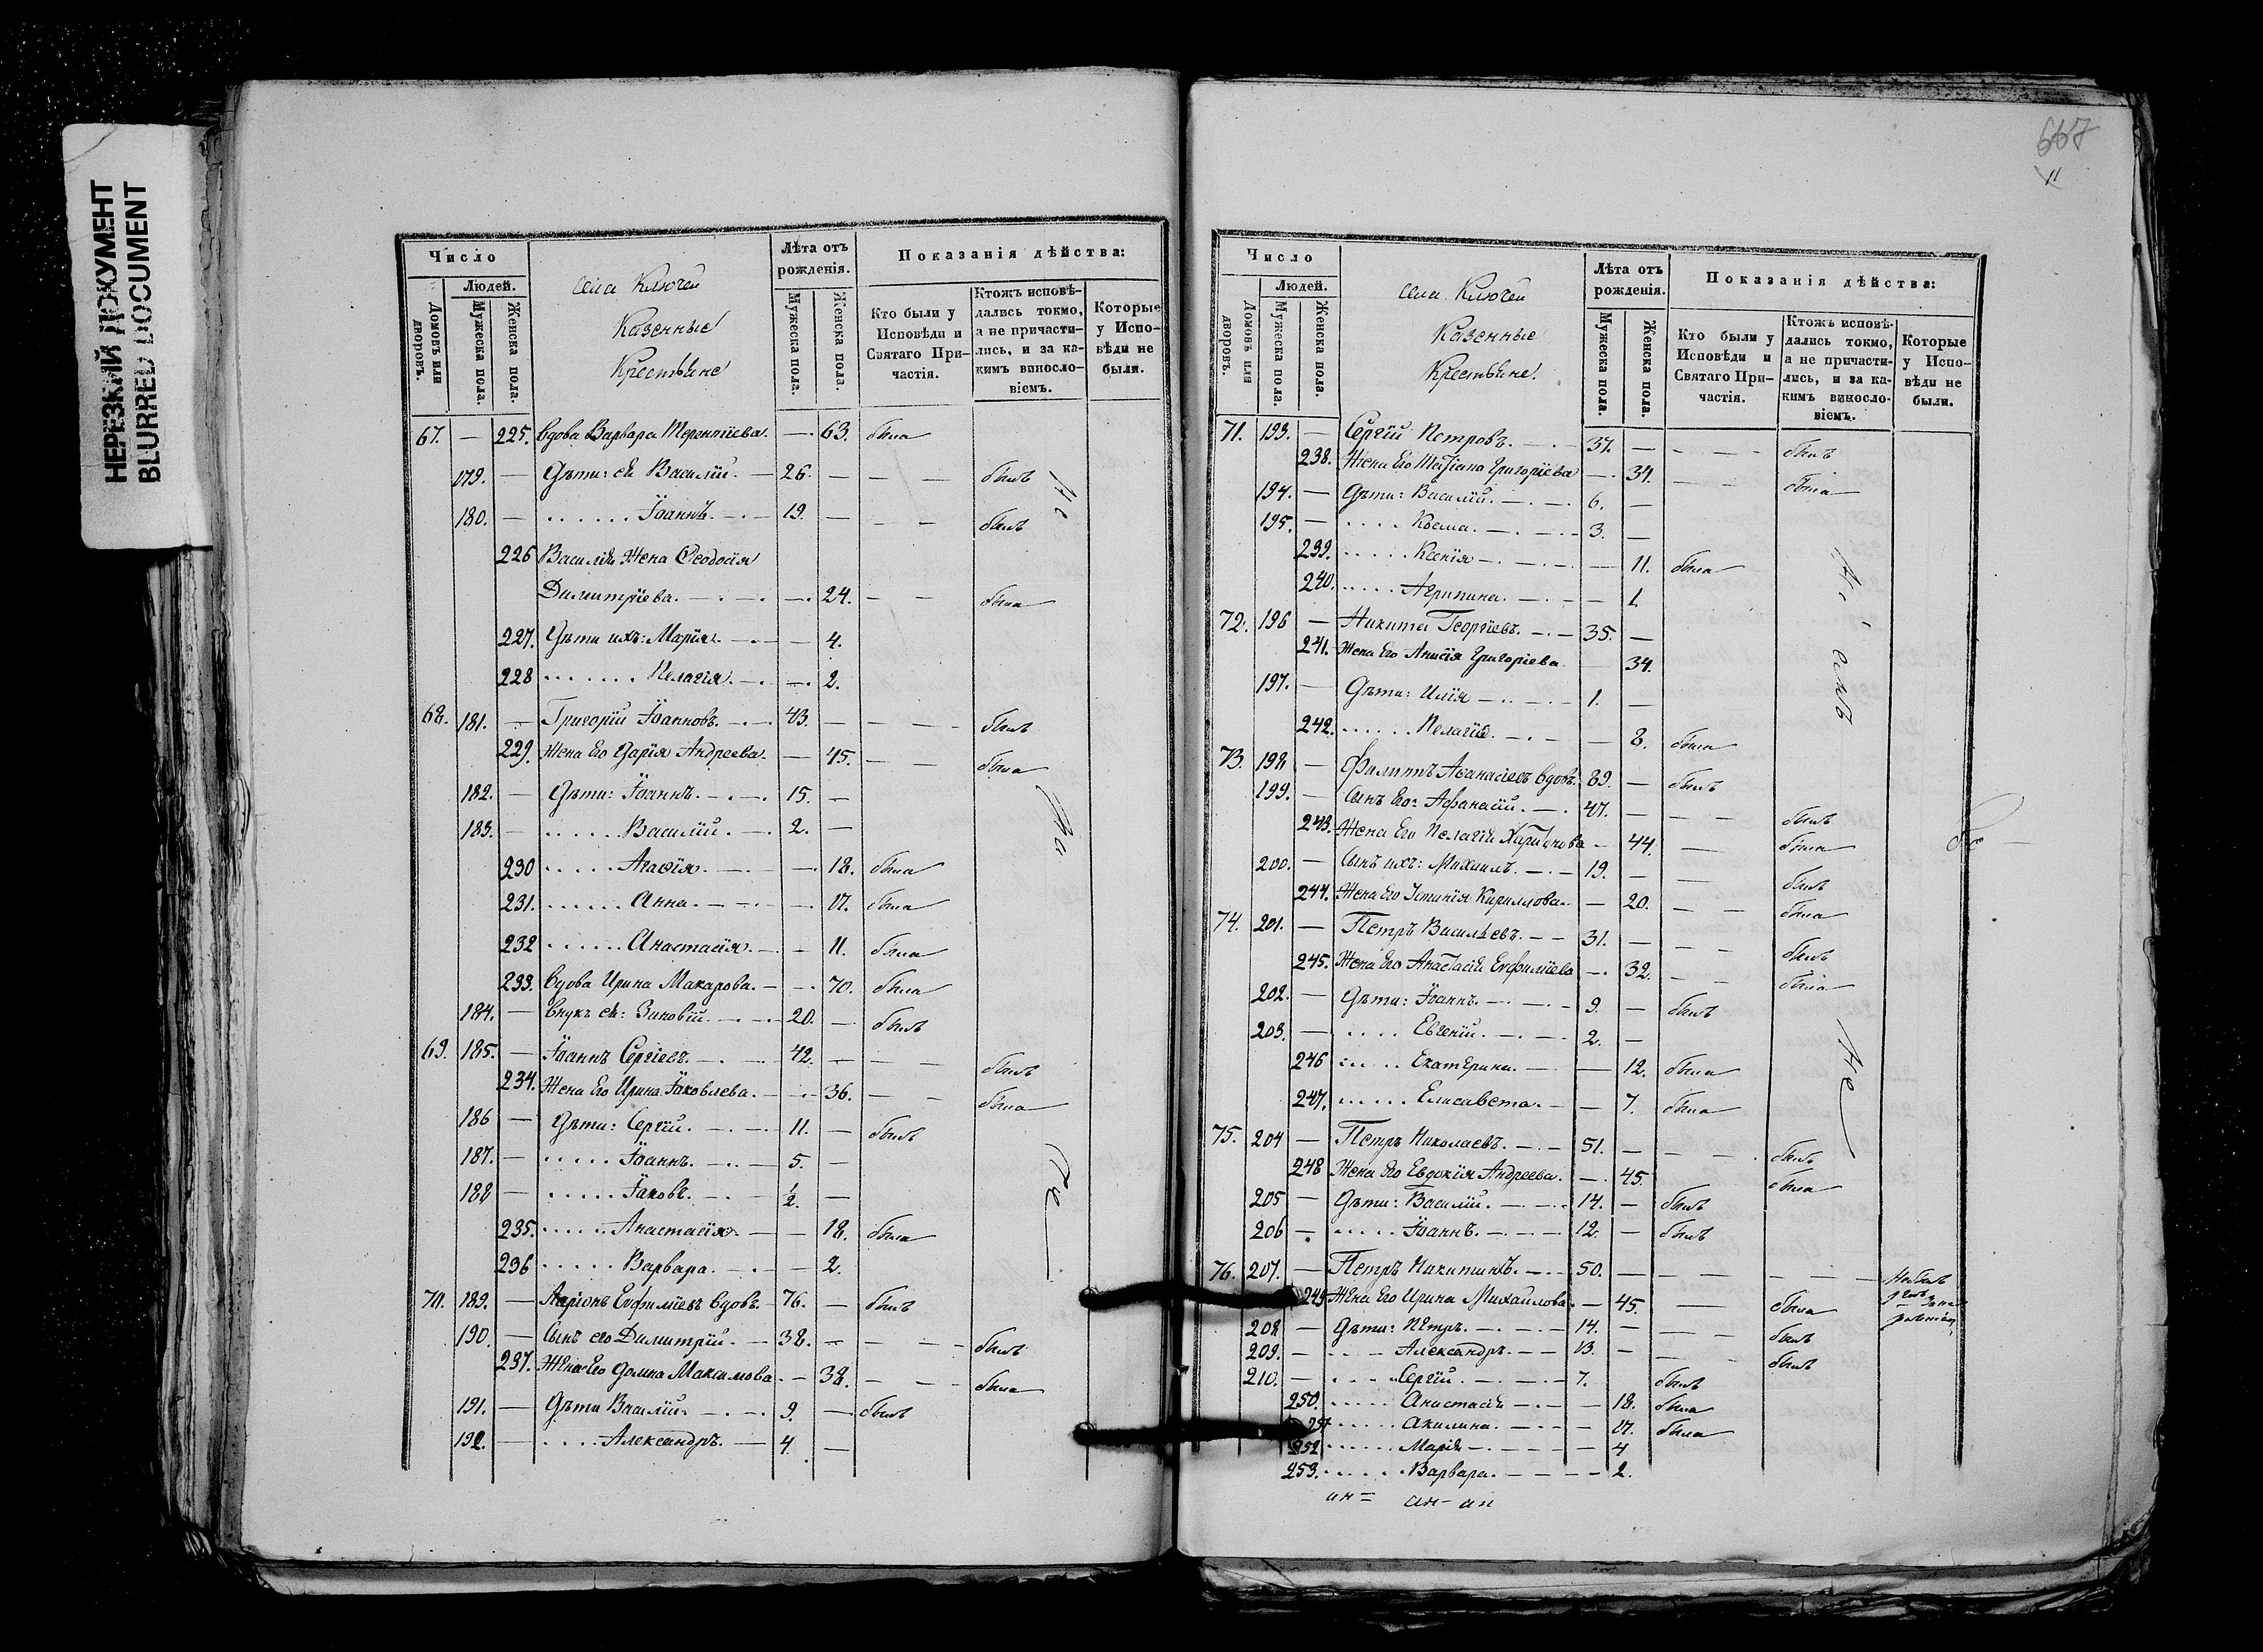 НЕРЕЗКИЙ ДОКУМЕНТ
BLURRED DOCUMENT
Число
Людей.
Домовъ или дворовъ.
Мужеска пола.
Женска пола.
села Ключей
Казенные
Крестьяне
Лѣта отъ рожденія.
Мужеска пола.
Женска пола.
Показанія дѣйства:
Кто были у Исповѣди и Святаго При-
частія.
Ктожъ исповѣ-
дались токмо,
а не причасти-
лись, и за ка-
кимъ винosло-
віемъ.
Которые
у Испо-
вѣди не
были.
67. — 225. Вдова Варвара Терентіева. — 63. была
179. — Дѣти: ея Василій. — 26. — — — былъ
180. — . . . . . . Іоаннъ. — 19. — — — былъ
226 Василія Жена Ѳеодосія
Димитріева. — — 24. — — была
227. Дѣти ихъ: Марія. — — 4.
228 . . . . . . . Пелагія. — — 2.
68. 181. — Григорій Іоанновъ. — 43. — — — былъ
229. Жена Его Дарія Андреева. — 45. — — была
182. — Дѣти: Іоаннъ. — 15. —
183. — . . . . . . Василій. — 2. —
230 . . . . . Агафія. — — 18. была
231. . . . . . . Анна. — — 17. была
232 . . . . . . Анастасія. — — 11. была
233. Вдова Ирина Макарова. — — 70. была
184. — Внукъ ея: Зиновій. — 20. — былъ
69. 185. — Іоаннъ Сергіевъ. — 42. — — — былъ
234. Жена Его Ирина Іаковлева. — — 36. — — была
186 — Дѣти: Сергій. — 11. — былъ
187. — . . . . . Іоаннъ. — 5. —
188 — . . . . . Іаковъ. — 1/2. —
235. . . . . . Анастасія — — 18. была
236 . . . . . Варвара. — — 2.
70. 189. — Ларіонъ Евфиміевъ вдовъ. — 76. — былъ
190. — Сынъ его Димитрій. — 38. — — — былъ
237. Жена Его Домна Максимова. — 38. — — была
191. — Дѣти Василій. — 9. — былъ
192. — . . . . Александръ. — 4. —
667
11
Число
Людей.
Домовъ или дворовъ.
Мужеска пола.
Женска пола.
села Ключей
Казенные
Крестьяне.
Лѣта отъ рожденія.
Мужеска пола.
Женска пола.
Показанія дѣйства:
Кто были у
Исповѣди и
Святаго При-
частія.
Ктожъ исповѣ-
дались токмо,
а не причасти-
лись, и за ка-
кимъ винoсло-
віемъ.
Которые
у Испо-
вѣди не
были.
71. 193. — Сергій Петровъ. — 37. — — — былъ
238. Жена Его Татіана Григоріева — 34. — — была
194. — Дѣти: Василій. — 6. —
195. — . . . . Косма. — 3. —
239. . . . . . Ксенія — — 11. была
240. . . . . . Агрипина. — — 1.
72. 196 — Никита Георгіевъ. — 35. —
241. Жена Его Анисія Григоріева — 34.
197. — Дѣти: Илія — 1. —
242. . . . . . . Пелагія. — — 8. была
73. 198 — Филиппъ Аѳанасіевъ вдовъ. 89. — былъ
199. — Сынъ Его: Афанасій. — 47. — — — былъ
243. Жена Его Пелагія Харитонова — 44. — была
200. — Сынъ ихъ: Михаилъ. — 19. — — былъ
244. Жена Его Устинія Кириллова. — 20. — — была
74. 201. — Петръ Васильевъ. — 31. — — — былъ
245. Жена Его Анастасія Евфиміева — 32. — — была
202. — Дѣти: Іоаннъ. — 9. — былъ
203. — . . . . Евгеній. — 2. —
246 . . . . . Екатерина. — — 12. была
247. . . . . . . Елисавета. — — 7. была
75. 204 — Петръ Николаевъ. — 51. — — — былъ
248 Жена Его Евдокія Андреева. — 45. была
205 — Дѣти: Василій. — 14. — былъ
206 — . . . . . Іоаннъ. — 12. — былъ
76. 207. — Петръ Никитинъ. — 50. — — — — — Не былъ
249 Жена Его Ирина Михаилова. — 45. — была
208 — Дѣти: Петръ. — 14. — — — былъ
209. — . . . Александръ. — 13. — — — былъ
210. — . . . Сергій. — 7. былъ
250. . . . . . Анастасія — — 18. была
251 . . . . . Акилина. — — 17. была
252 . . . . . . Марія — — 4
253. . . . . . Варвара. — — 2.